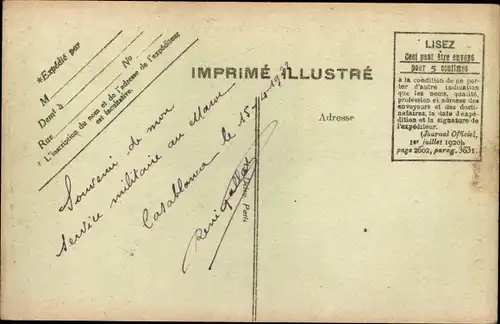 *Expédié par
M
No
Demt à
Rue
L'inscription du nom et de l'adresse de l'expéditeur
est facultative.
IMPRIMÉ ILLUSTRÉ
Adresse
LISEZ
Ceci peut être envoyé
pour 5 centimes
à la condition de ne por-
ter d'autre indication
que les nom, qualité,
profession et adresse des
envoyeurs et des desti-
nataires, la date d'expé-
dition et la signature de
l'expéditeur.
(Journal Officiel,
1er juillet 1920)
page 2602, parag. 3631.
Souvenir de mon
service militaire au Maroc
Casablanca le 15
René
Paris